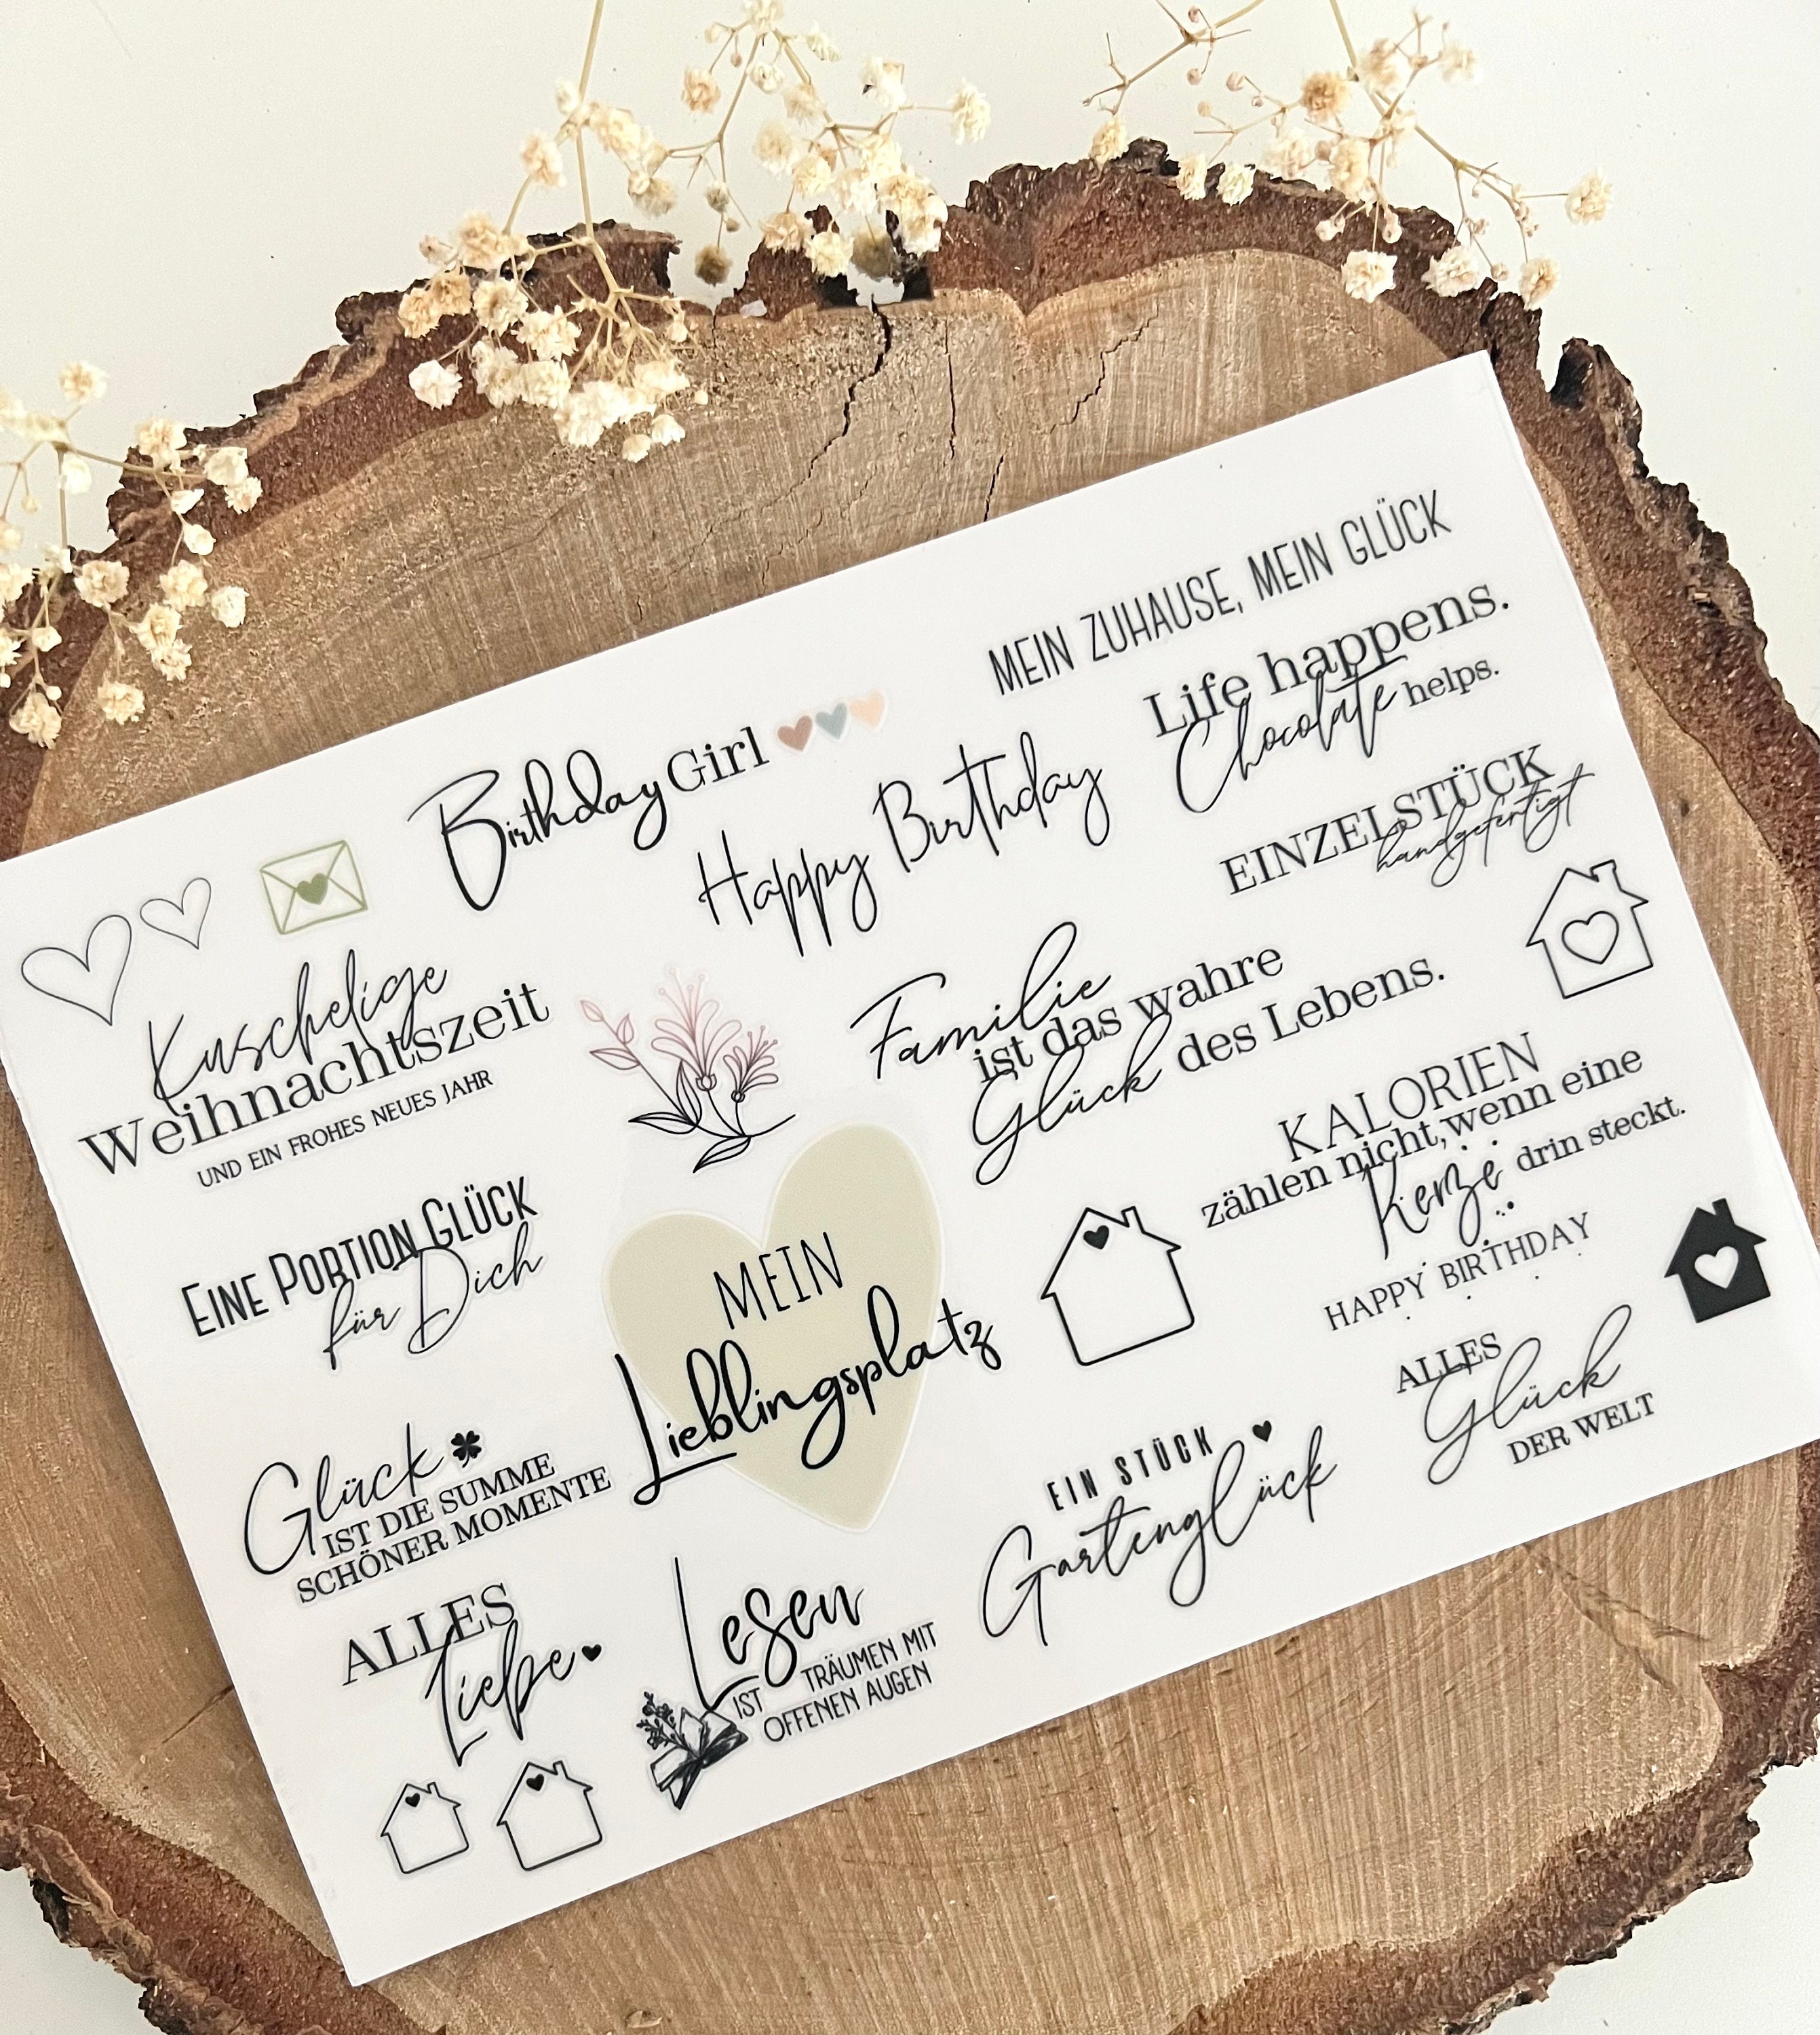 MEIN ZUHAUSE, MEIN GLÜCK
Birthday Girl
Happy Birthday
Life happens.
Chocolate helps.
EINZELSTÜCK
handgefertigt
Kuschelige
Weihnachtszeit
UND EIN FROHES NEUES JAHR
Familie
ist das wahre
Glück des Lebens.
KALORIEN
zählen nicht, wenn eine
Kerze drin steckt.
HAPPY BIRTHDAY
EINE PORTION GLÜCK
für Dich
MEIN
Lieblingsplatz
ALLES
Glück
DER WELT
Glück
IST DIE SUMME
SCHÖNER MOMENTE
EIN STÜCK
Gartenglück
ALLES
Liebe
Lesen
IST TRÄUMEN MIT
OFFENEN AUGEN